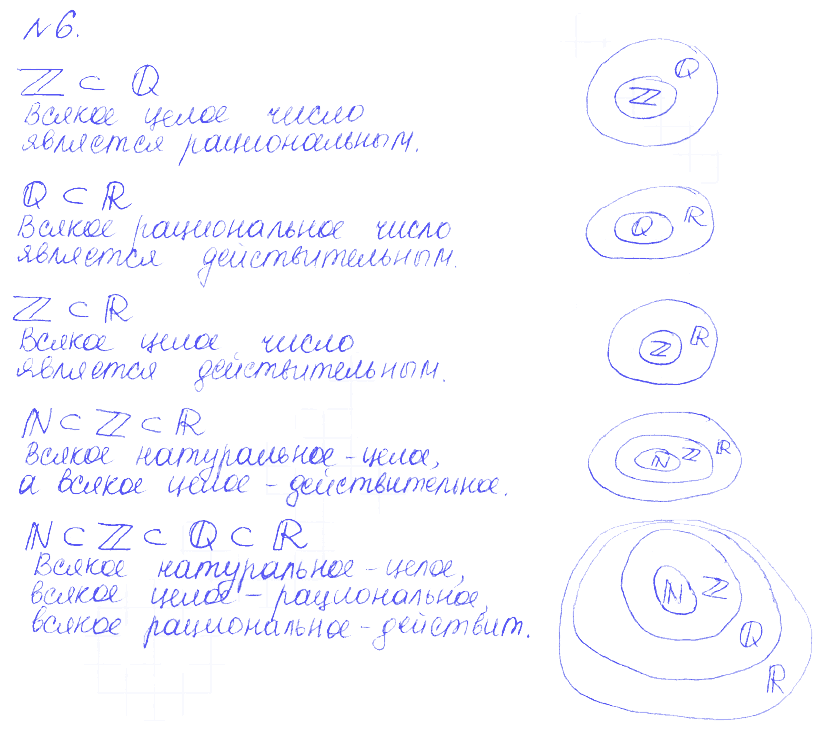 №6.
ℤ ⊂ ℚ
Всякое целое число
является рациональным.
ℚ
ℤ
ℚ ⊂ ℝ
Всякое рациональное число
является действительным.
ℚ
ℝ
ℤ ⊂ ℝ
Всякое целое число
является действительным.
ℤ
ℝ
ℕ ⊂ ℤ ⊂ ℝ
Всякое натуральное - целое,
а всякое целое - действительное.
ℕ
ℤ
ℝ
ℕ ⊂ ℤ ⊂ ℚ ⊂ ℝ
Всякое натуральное - целое,
всякое целое - рациональное,
всякое рациональное - действит.
ℕ
ℤ
ℚ
ℝ